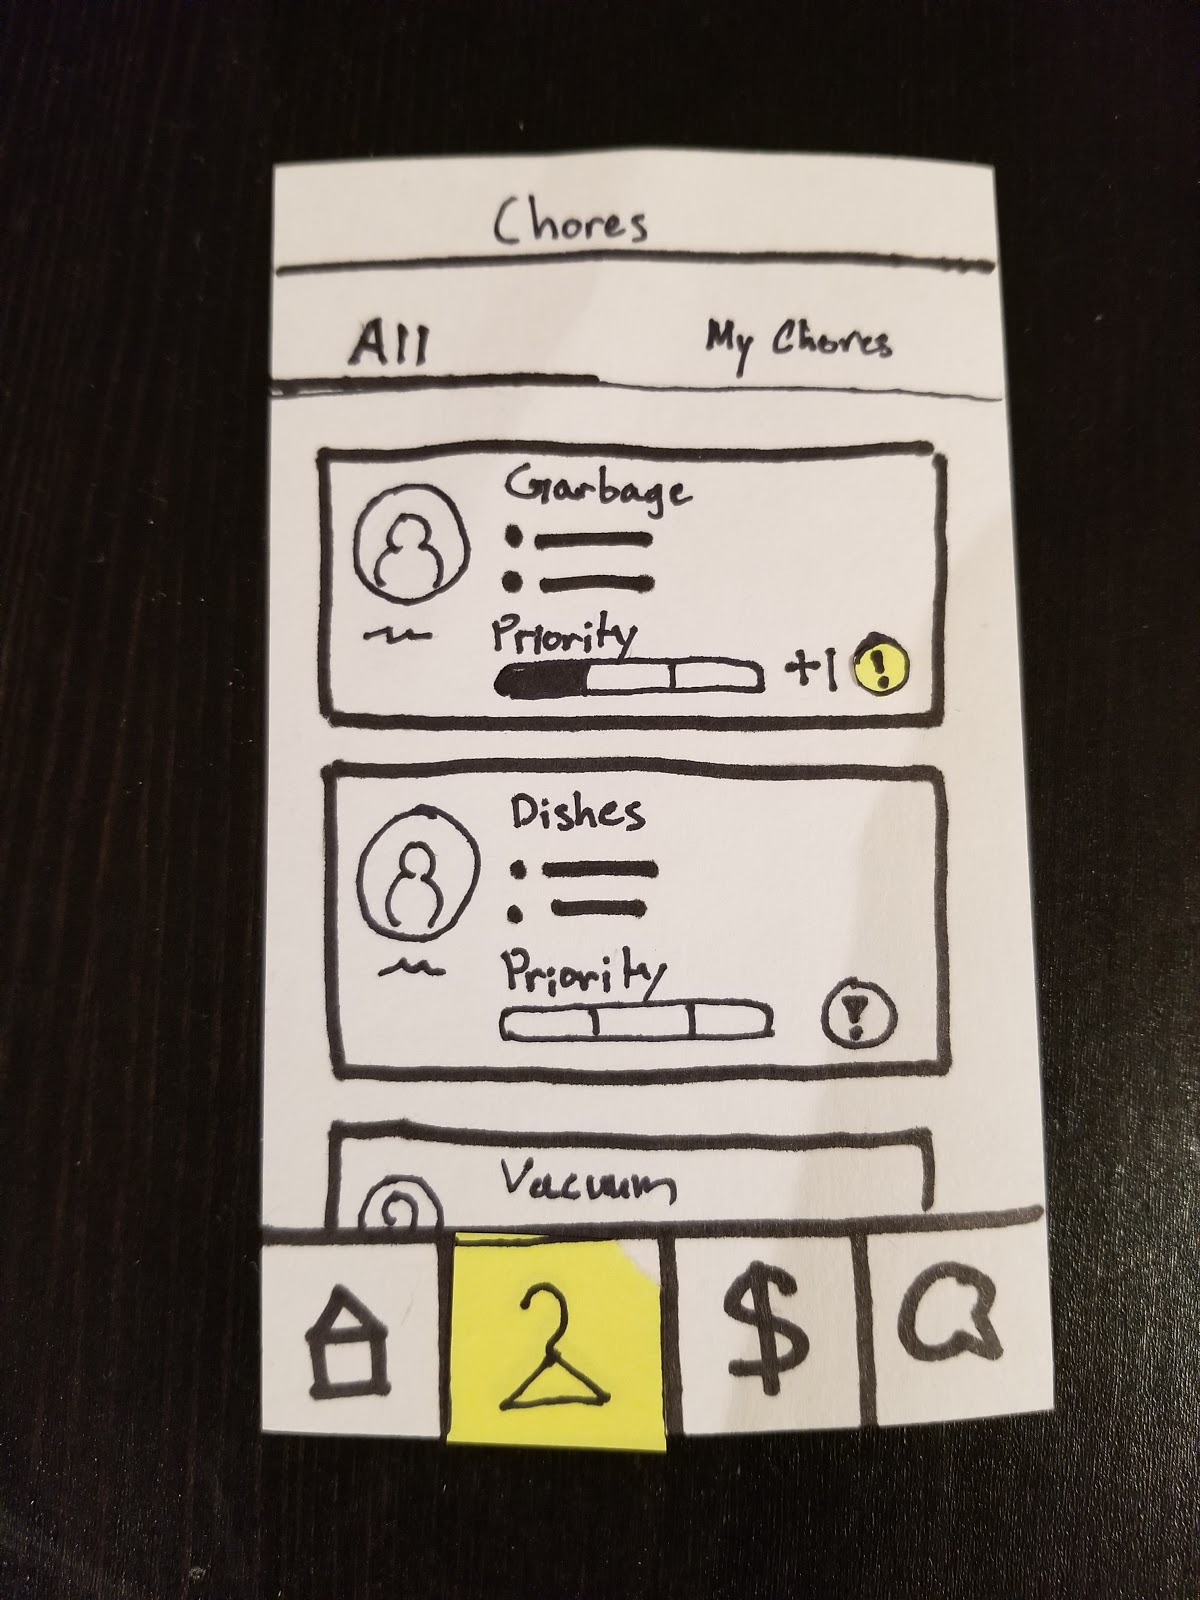 Chores
All
My Chores
Garbage
Priority
+1 !
Dishes
Priority
!
Vacuum
$